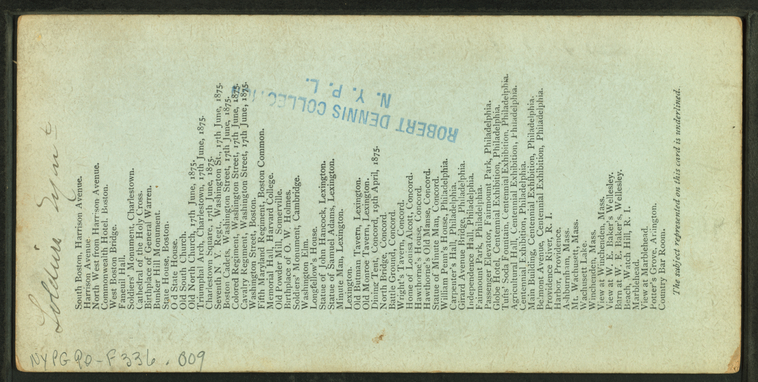 Soldiers' Mon't
South Boston, Harrison Avenue.
Harrison Avenue.
North West from Harrison Avenue.
Commonwealth Hotel, Boston.
West Boston Bridge.
Faneuil Hall.
Soldiers' Monument, Charlestown.
Cathedral of the Holy Cross.
Birthplace of General Warren.
Bunker Hill Monument.
State House, Boston.
Old State House.
Old South Church.
Old North Church, 17th June, 1875.
Triumphal Arch, Charlestown, 17th June, 1875.
Charlestown Square, 17th June, 1875.
Seventh N. Y. Regt., Washington St., 17th June, 1875.
Boston Cadets, Washington Street, 17th June, 1875.
Colored Regiment, Washington Street, 17th June, 1875.
Cavalry Regiment, Washington Street, 17th June, 1875.
Washington Street, Boston.
Fifth Maryland Regiment, Boston Common.
Memorial Hall, Harvard College.
Old Powder Mill, Somerville.
Birthplace of O. W. Holmes.
Soldiers' Monument, Cambridge.
Washington Elm.
Longfellow's House.
Statue of John Hancock, Lexington.
Statue of Samuel Adams, Lexington.
Minute Man, Lexington.
Lexington.
Old Buttman Tavern, Lexington.
Old Monroe Tavern, Lexington.
Dining Tent, Concord, 19th April, 1875.
North Bridge, Concord.
Battle Ground, Concord.
Wright's Tavern, Concord.
Home of Louisa Alcott, Concord.
Hawthorne's House, Concord.
Hawthorne's Old Manse, Concord.
Statue Minute Man, Concord.
William Penn's House, Philadelphia.
Carpenter's Hall, Philadelphia.
Girard Avenue Bridge, Philadelphia.
Independence Hall, Philadelphia.
Fairmount Park, Philadelphia.
Passenger Elevator, Fairmount Park, Philadelphia.
Globe Hotel, Centennial Exhibition, Philadelphia.
Tufts' Fountain, Centennial Exhibition, Philadelphia.
Agricultural Hall, Centennial Exhibition, Philadelphia.
Centennial Exhibition, Philadelphia.
Main Building, Centennial Exhibition, Philadelphia.
Belmont Avenue, Centennial Exhibition, Philadelphia.
Providence River, R. I.
Harbor, Providence.
Ashburnham, Mass.
Mt. Wachusett, Mass.
Wachusett Lake.
Winchendon, Mass.
View at Winchendon, Mass.
View at W. E. Baker's Wellesley.
Barn at W. E. Baker's, Wellesley.
Beach, Watch Hill, R. I.
Marblehead.
View at Marblehead.
Potter's Grove, Arlington.
Country Bar Room.
The subject represented on this card is underlined.
ROBERT DENNIS COLLEC.
N. Y. P. L.
NYPG-PO-F336.009